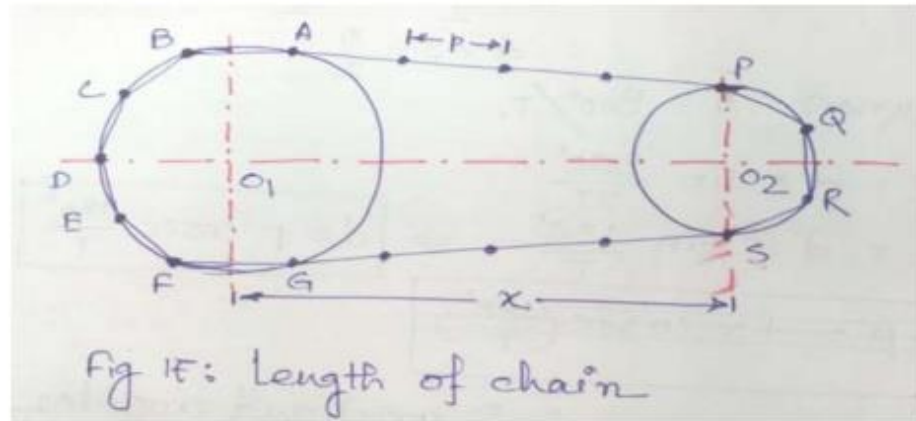 B A P
P
C Q
D O1 O2
E R
F G S
x
Fig 15: Length of chain